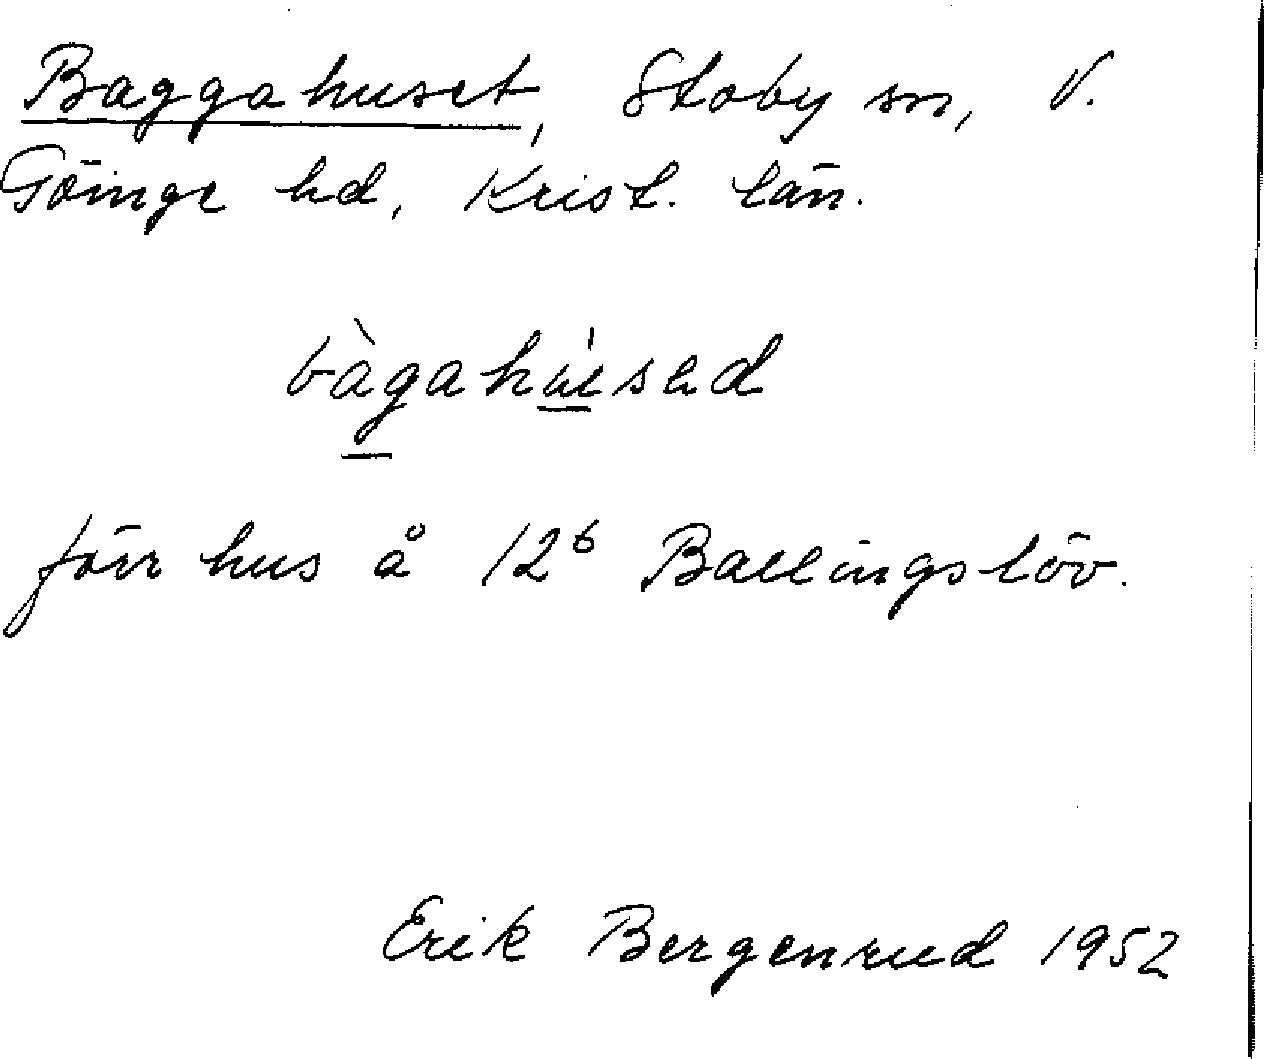 Baggahuset, Stoby sn, V.
Göinge hd, Krist. län.
bàgahùsad
förr hus å 12⁶ Ballingslöv.
Erik Bergenrud 1952